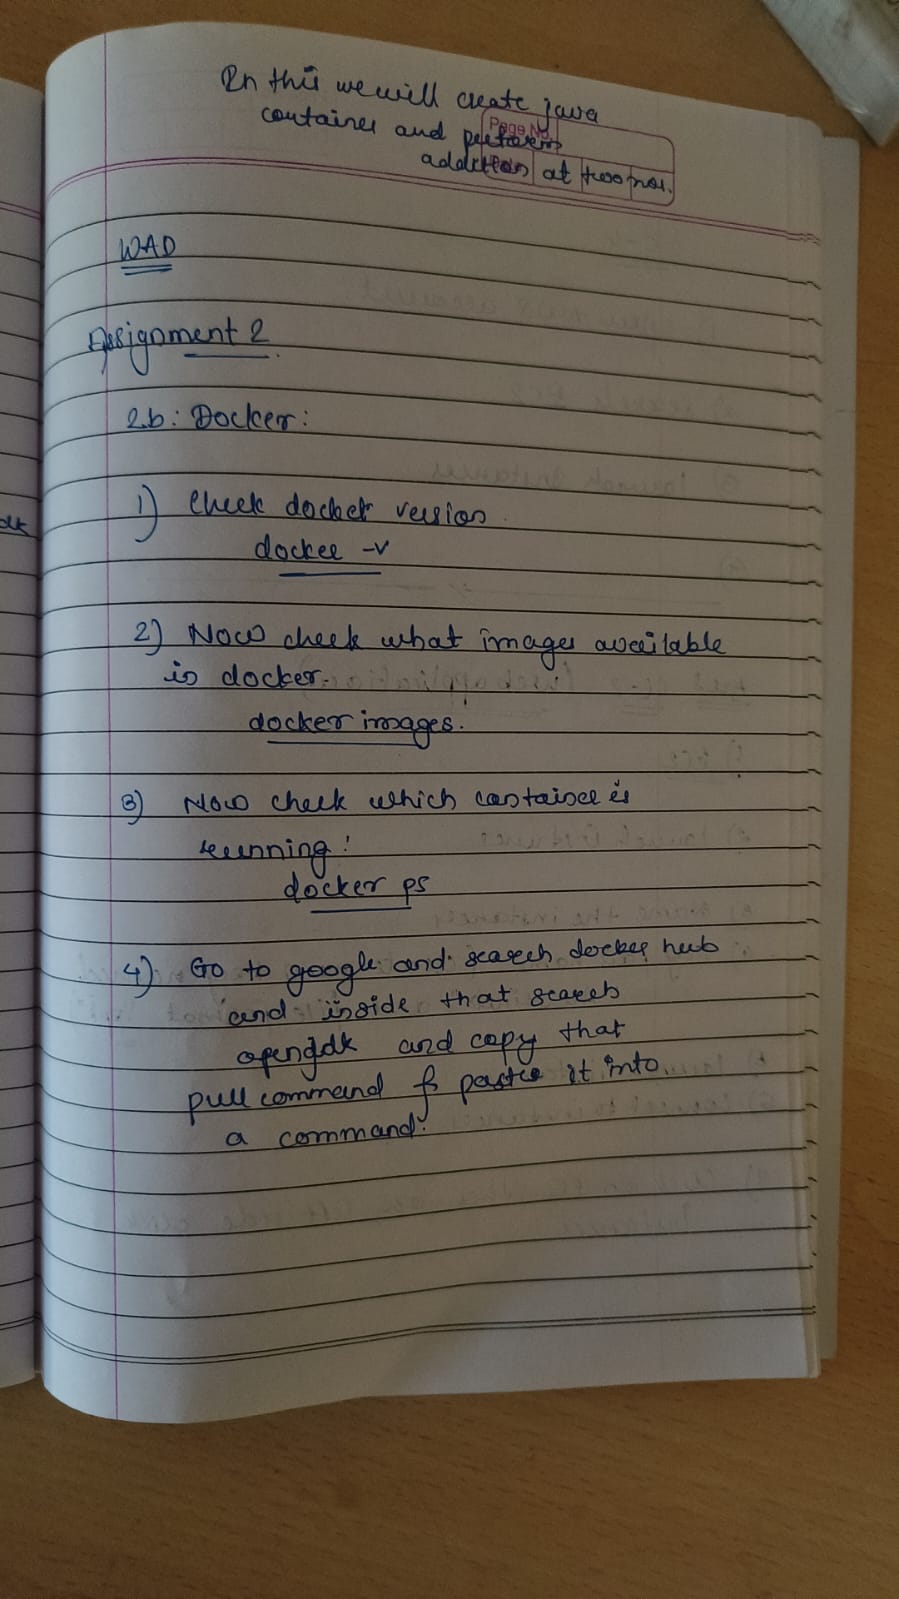 In this we will create java
container and perform
Page No.
addition at two nos.
WAD
Assignment 2
2.b: Docker:
1) Check docker version
docker -v
2) Now check what images available
in docker.
docker images.
3) Now check which container is
running:
docker ps
4) Go to google and search docker hub
and inside that search
openjdk and copy that
pull command & paste it into
a command.